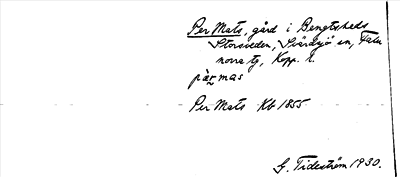 Per Mats, gård i Bengtsheds
Storsveden, Svärdsjö sn, Falu
norra tg, Kopp. l.
pärmas
Per Mats Kb 1855
G. Tideström 1930.